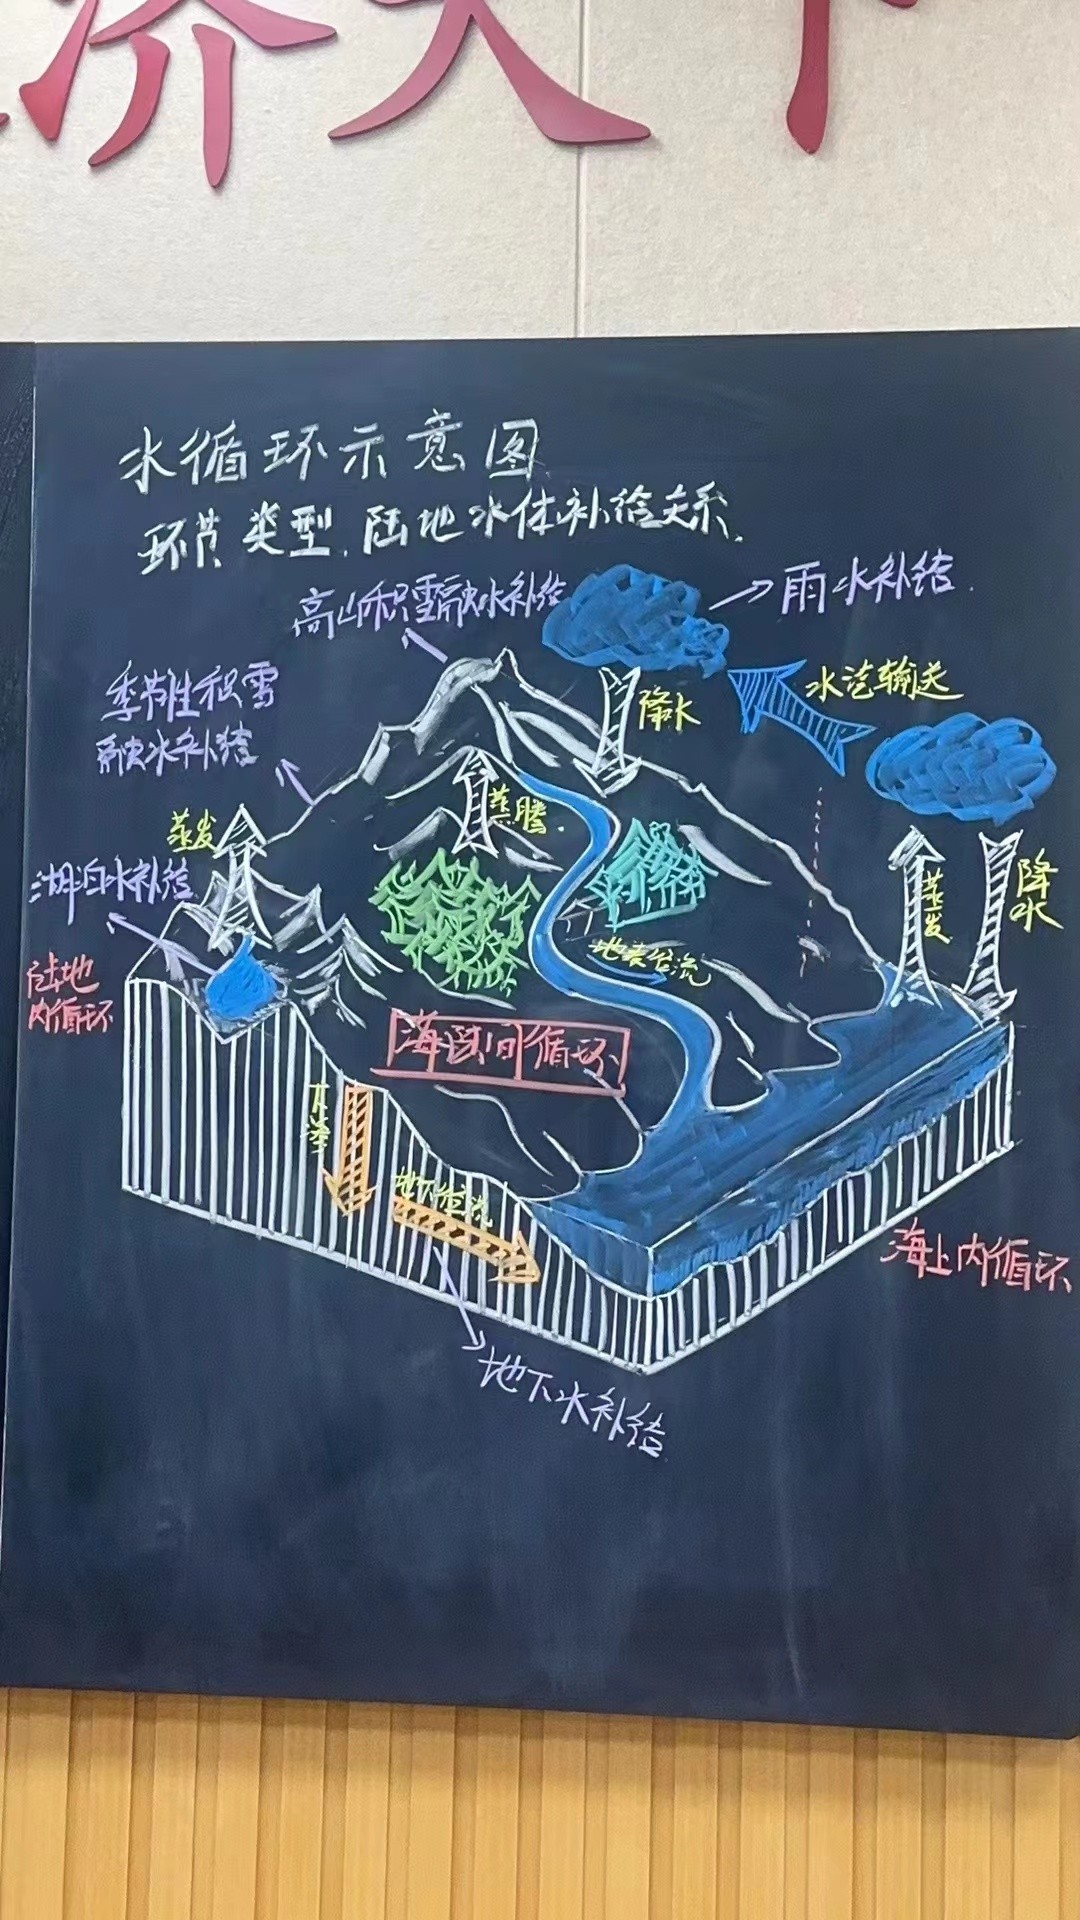 济天下
水循环示意图
环节 类型、陆地水体补给关系、
高山积雪融水补给
雨水补给
季节性积雪
融水补给
水汽输送
降水
蒸腾
蒸发
湖泊水补给
蒸发
降水
陆地
内循环
地表径流
海陆间循环
下渗
地下径流
海上内循环
地下水补给